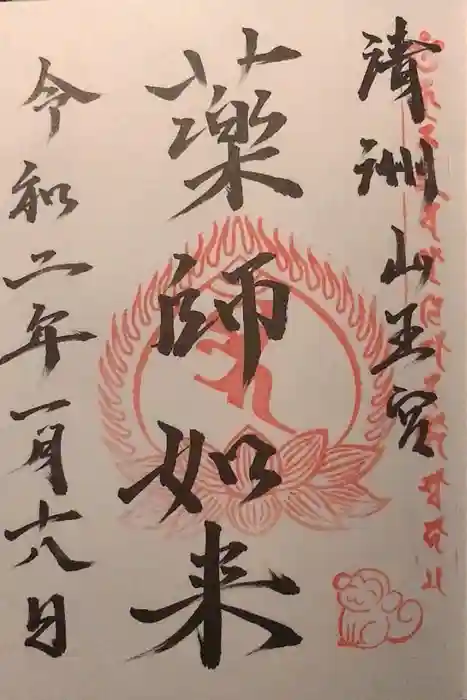 清洲山王宮
薬師如来
令和二年一月十八日